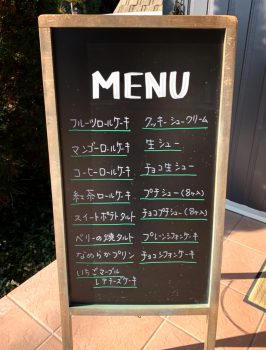 MENU
フルーツロールケーキ
マンゴーロールケーキ
コーヒーロールケーキ
紅茶ロールケーキ
スイートポテトタルト
ベリーの焼タルト
なめらかプリン
いちごマーブル
レアチーズケーキ
クッキーシュークリーム
生シュー
チョコ生シュー
プチシュー(8ヶ入)
チョコプチシュー(8ヶ入)
プレーンシフォンケーキ
チョコシフォンケーキ